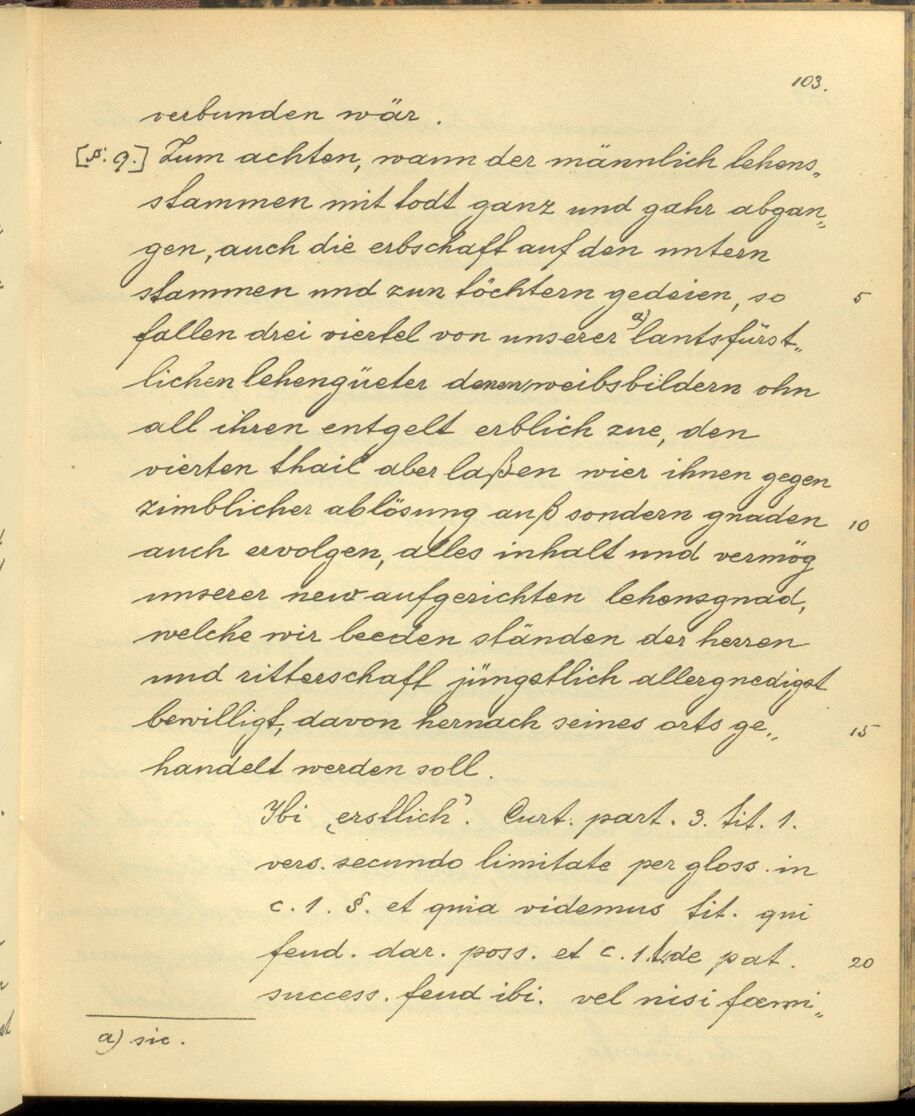 103.
verbunden wär.
[s. 9.] Zum achten, wann der männlich lehens„
stammen mit todt ganz und gahr abgan„
gen, auch die erbschaft auf den untern
stammen und zun töchtern gedeien, so 5
fallen drei viertel von unserer a) lantsfürst„
lichen lehengüeter denen weibsbildern ohn
all ihren entgelt erblich zue, den
vierten thail aber laßen wier ihnen gegen
zimblicher ablösung auß sondern gnaden 10
auch ervolgen, alles inhalt und vermög
unserer new aufgerichten lehensgnad,
welche wir beeden ständen der herren
und ritterschaft jüngstlich allergnedigst
bewilligt, davon hernach seines orts ge„ 15
handelt werden soll.
Ibi ‚erstlich’. Curt. part. 3. tit. 1.
vers. secundo limitate per gloss. in
c. 1. §. et quia videmus tit. qui
feud. dar. poss. et c. 1. t. de pat. 20
success. feud ibi. vel nisi fœmi„
a) sic.